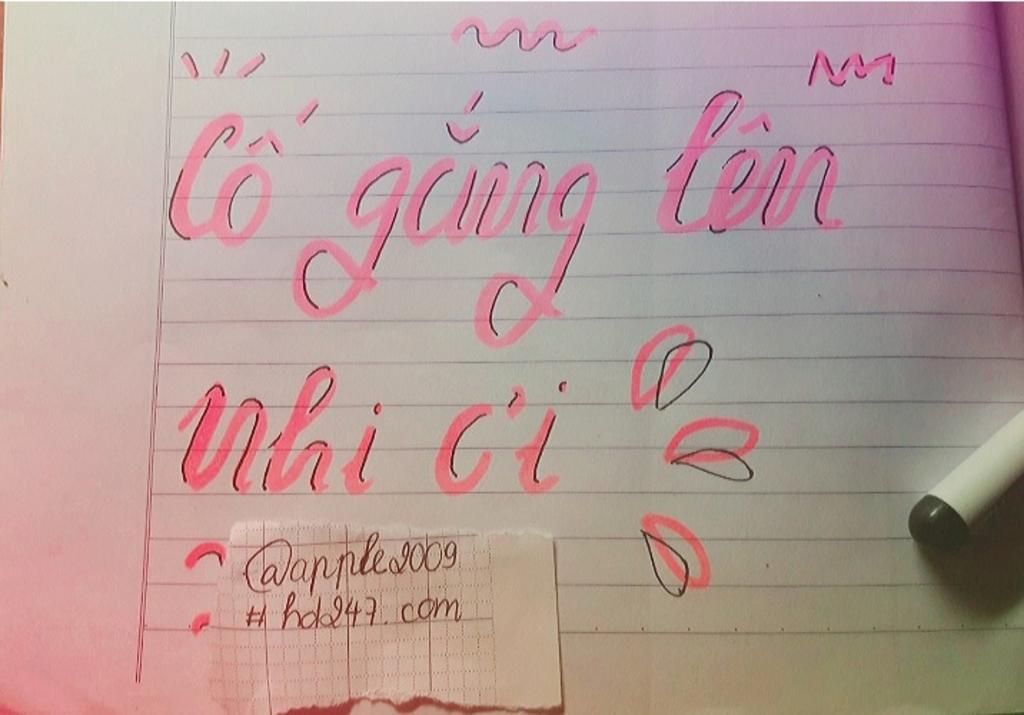 Cố gắng lên
Nhi ơi
@apple2009
# hdd247.com